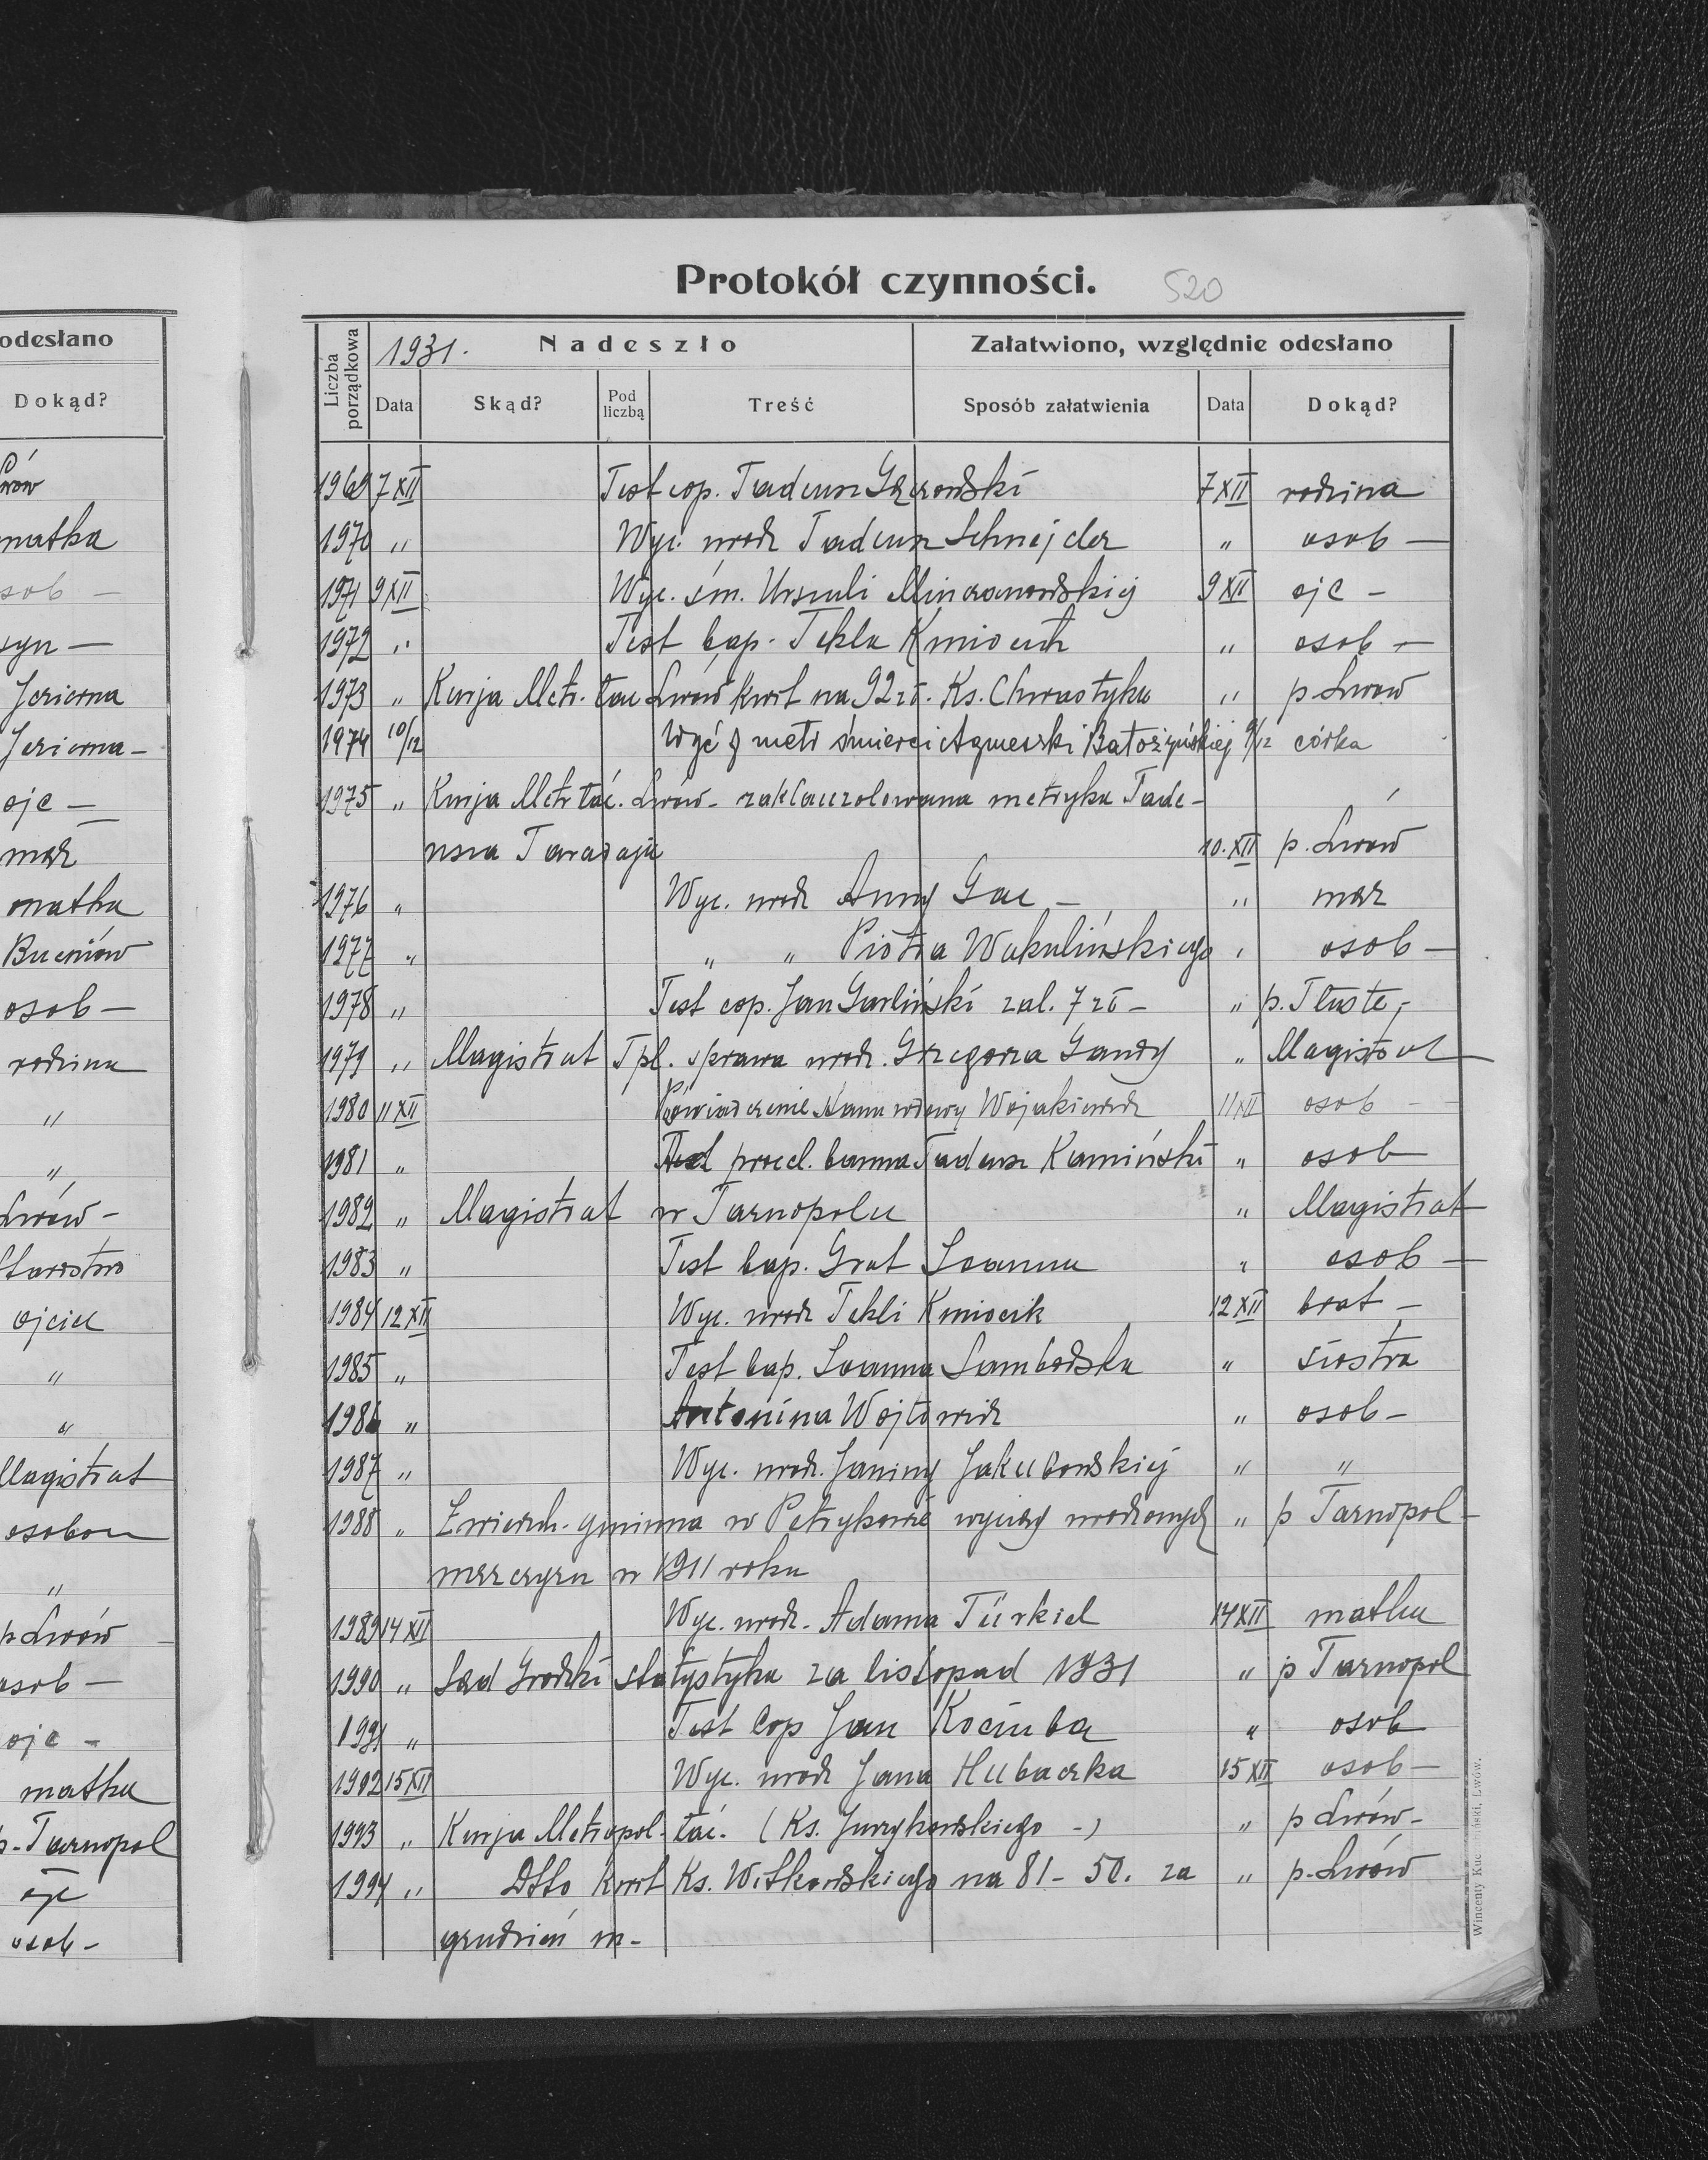 odesłano
Dokąd?
Lwów
matka
osob —
syn —
Jezierna
Jezierna —
ojc —
mąż
matka
Buczniów
osob —
rodzina
"
"
Lwów —
Starostwo
ojciec
"
"
Magistrat
osobou
"
p Lwów
osob —
ojc —
matka
p. Tarnopol
ojc
osob —
Protokół czynności. 520
Liczba porządkowa
1931. Nadeszło Załatwiono, względnie odesłano
Data Skąd? Pod liczbą Treść Sposób załatwienia Data Dokąd?
1969 7 XII Test cop. Tadeusz 7 XII rodzina
1970 " Wyc. urodz Tadeusz Schnejder " osob —
1971 9 XII Wyc. śm. Urszuli 9 XII ojc —
1972 " Test bap. Tekla Kmiocik " osob —
1973 " Kurja Metr. łac Lwów kwit na 92 zł. Ks. Chwastyka " p. Lwow
1974 10/12 Wyć z metr śmierci Agnieszki Batożyńskiej 9/12 córka
1975 " Kurja Metr łać. Lwów — zaklauzolowana metryka Tade-
usza 10. XII p. Lwów
1976 " Wyc. urodz Anny Gac — " mąż
1977 " " " Piotra Wakulińskiego " osob —
1978 " Test cop. Jan Garliński zal. 7 zł — " p. Tłuste,
1979 " Magistrat Tpl. sprawa urodz. Grzegorza Gandy " Magistrat
1980 11 XII Poświadczenie stanu wdowy 11 XII osob —
1981 " Test Tadeusz Kamiński " osob
1982 " Magistrat w Tarnopolu " Magistrat
1983 " Test bap. Grat Joanna " osob —
1984 12 XII Wyc. urodz Tekli Kmiocik 12 XII brat —
1985 " Test bap. Joanna Samborska " siostra
1986 " Antonina Wojtowicz " osob —
1987 " Wyc. urodz. Janiny Jakubowskiej " "
1988 " Zwierzch. gminna w Petrykowie wyciąg urodzonych " p Tarnopol —
mężczyzn w 1911 roku
1989 14 XII Wyc. urodz. Adama Türkiel 14 XII matka
1990 " Sąd Grodzki statystyka za listopad 1931 " p Tarnopol
1991 " Test cop Jan Kociuba " osob
1992 15 XII Wyc. urodz Jana Hubaczka 15 XII osob —
1993 " Kurja Metropol. łać. (Ks. Jurzykowskiego —) " p Lwów —
1994 " Dtto kwit Ks. Witkowskiego na 81 — 50. za " p. Lwów
grudzień
Wincenty Kuc Lwów.